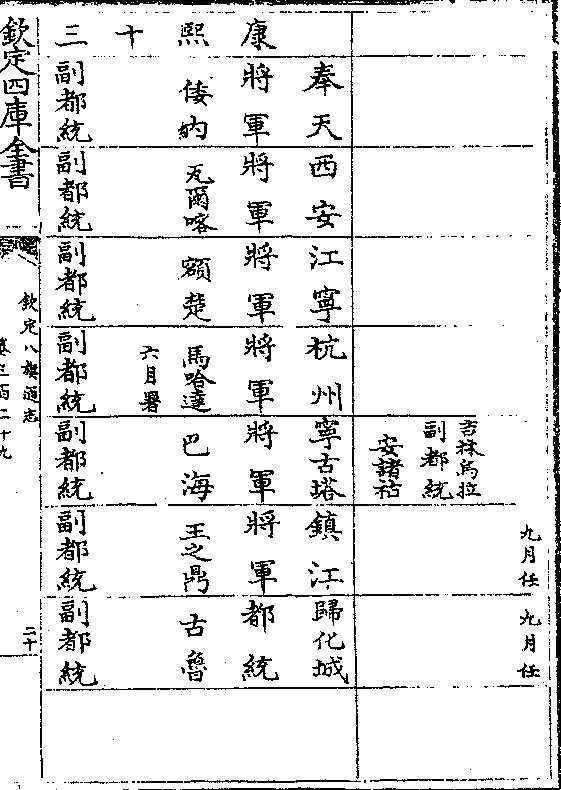 九月任
九月任
吉林烏拉
副都統
安諸祜
康熙十三
奉天
將軍
倭納
副都統
西安
將軍
瓦爾喀
副都統
江寧
將軍
額楚
副都統
杭州
將軍
馬哈達
六月署
副都統
寧古塔
將軍
巴海
副都統
鎮江
將軍
王之鼎
副都統
歸化城
都統
古魯
副都統
欽定四庫全書
欽定八旗通志
卷三百二十九
二十